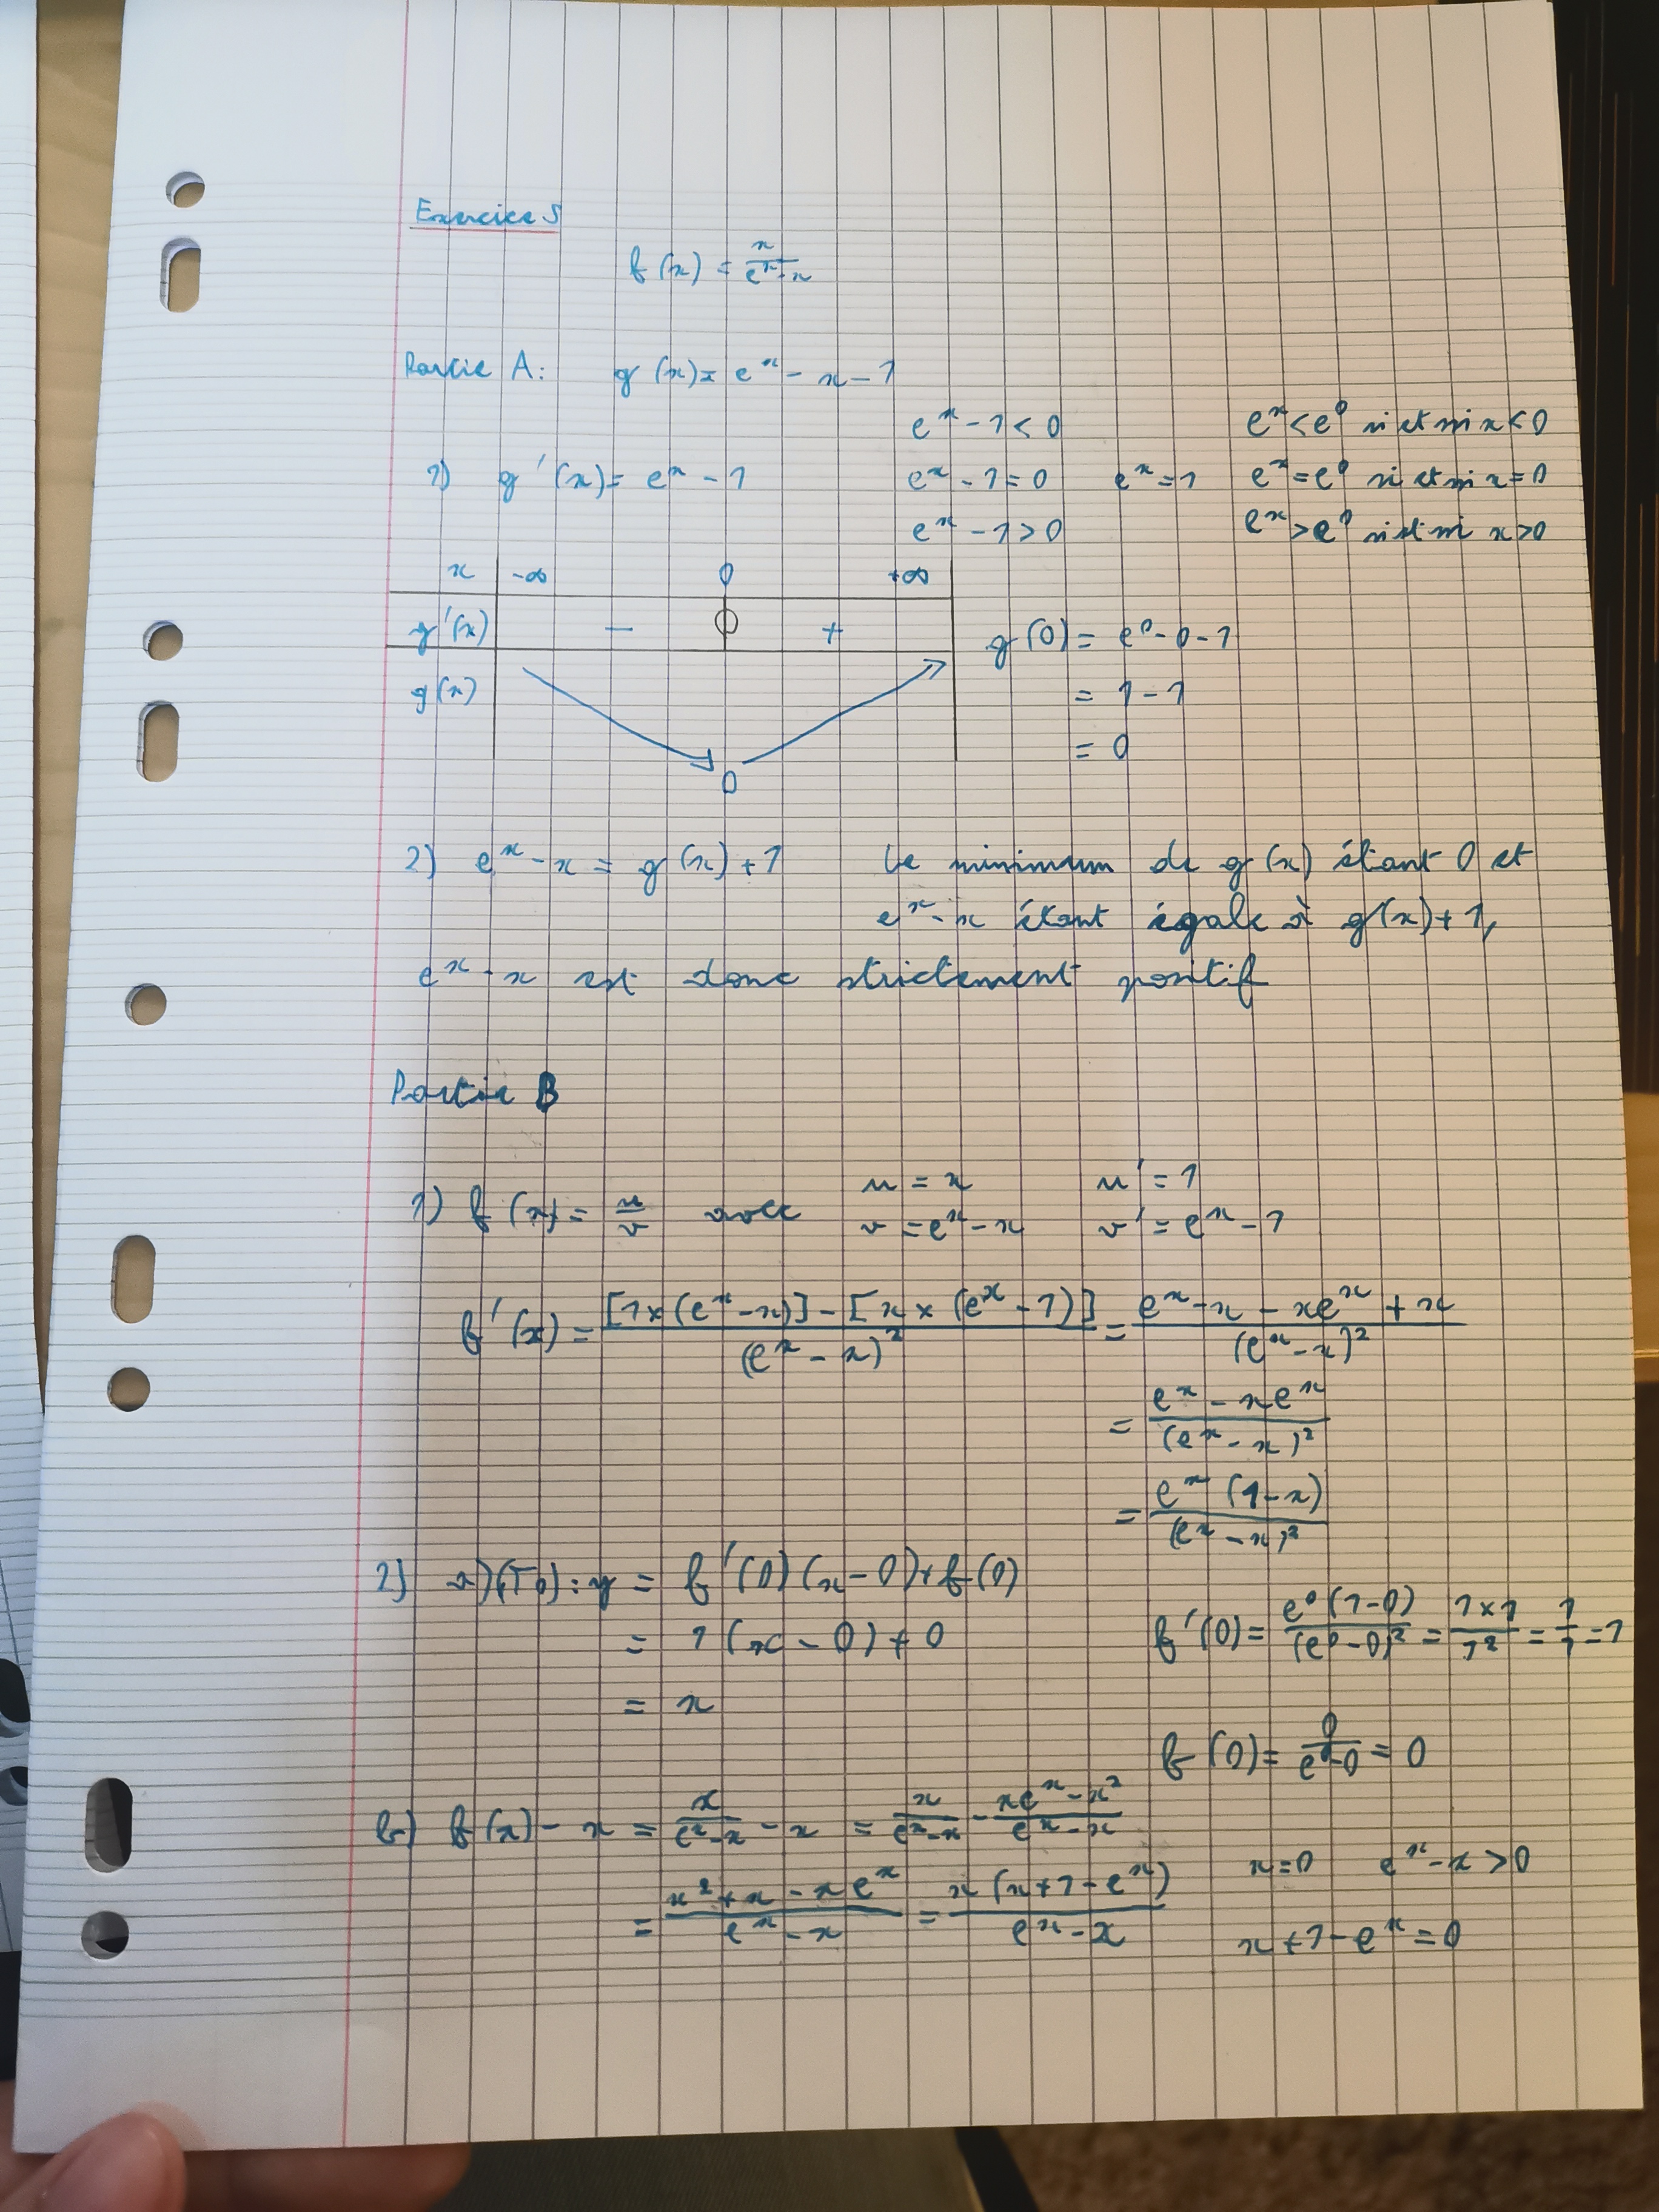 Exercice 5
f(x) = x/(e^x - x)
Partie A: g(x) = e^x - x - 1
e^x - 1 < 0 e^x < e^0 si et ssi x < 0
1) g'(x) = e^x - 1 e^x - 1 = 0 e^x = 1 e^x = e^0 si et ssi x = 0
e^x - 1 > 0 e^x > e^0 si et ssi x > 0
x -∞ 0 +∞
g'(x) - 0 + g(0) = e^0 - 0 - 1
g(x) = 1 - 1
= 0
0
2) e^x - x = g(x) + 1 Le minimum de g(x) étant 0 et
e^x - x étant égale à g(x) + 1,
e^x - x est donc strictement positif
Partie B
u = x u' = 1
1) f(x) = u/v avec v = e^x - x v' = e^x - 1
f'(x) = ([1×(e^x - x)] - [x × (e^x - 1)])/(e^x - x)^2 = (e^x - x - xe^x + x)/(e^x - x)^2
= (e^x - xe^x)/(e^x - x)^2
= (e^x (1 - x))/(e^x - x)^2
2) a) (T0) : y = f'(0) (x - 0) + f(0)
= 1 (x - 0) + 0 f'(0) = (e^0 (1 - 0))/(e^0 - 0)^2 = (1×1)/1^2 = 1/1 = 1
= x
f(0) = 0/(e^0 - 0) = 0
b) f(x) - x = x/(e^x - x) - x = x/(e^x - x) - (xe^x - x^2)/(e^x - x)
x = 0 e^x - x > 0
= (x^2 + x - xe^x)/(e^x - x) = (x (x + 1 - e^x))/(e^x - x)
x + 1 - e^x = 0